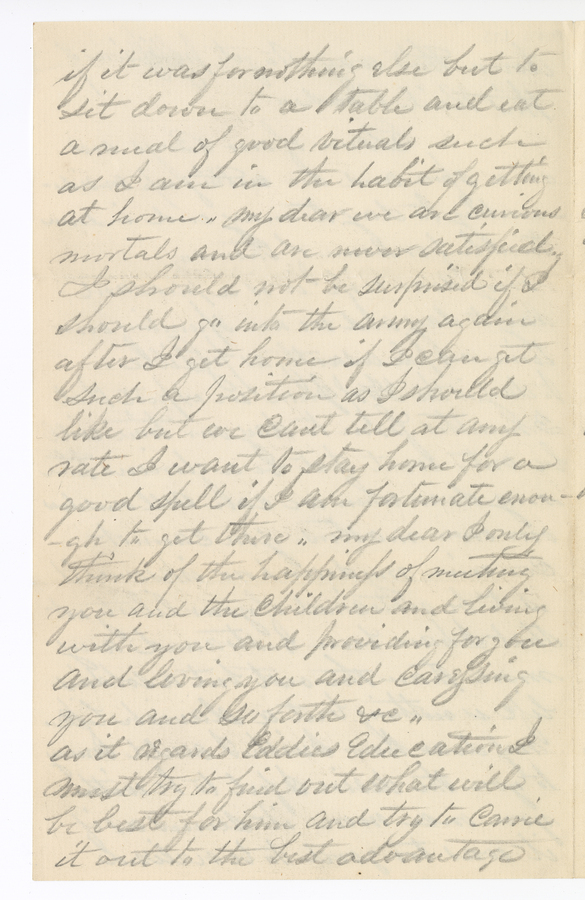 if it was for nothing else but to
sit down to a table and eat
a meal of good vituals such
as I am in the habit of getting
at home „ my dear we are curious
mortals and are never satisfied„
I should not be surprised if I
should go into the army again
after I get home if I can get
such a position as I should
like but we cant tell at any
rate I want to stay home for a
good spell if I am fortunate enou-
-gh to get there „ my dear I only
think of the happiness of meeting
you and the Children and living
with you and providing for you
and loving you and caressing
you and so forth &c „
as it regards Eddies Education I
must try to find out what will
be best for him and try to Carrie
it out to the best advantage